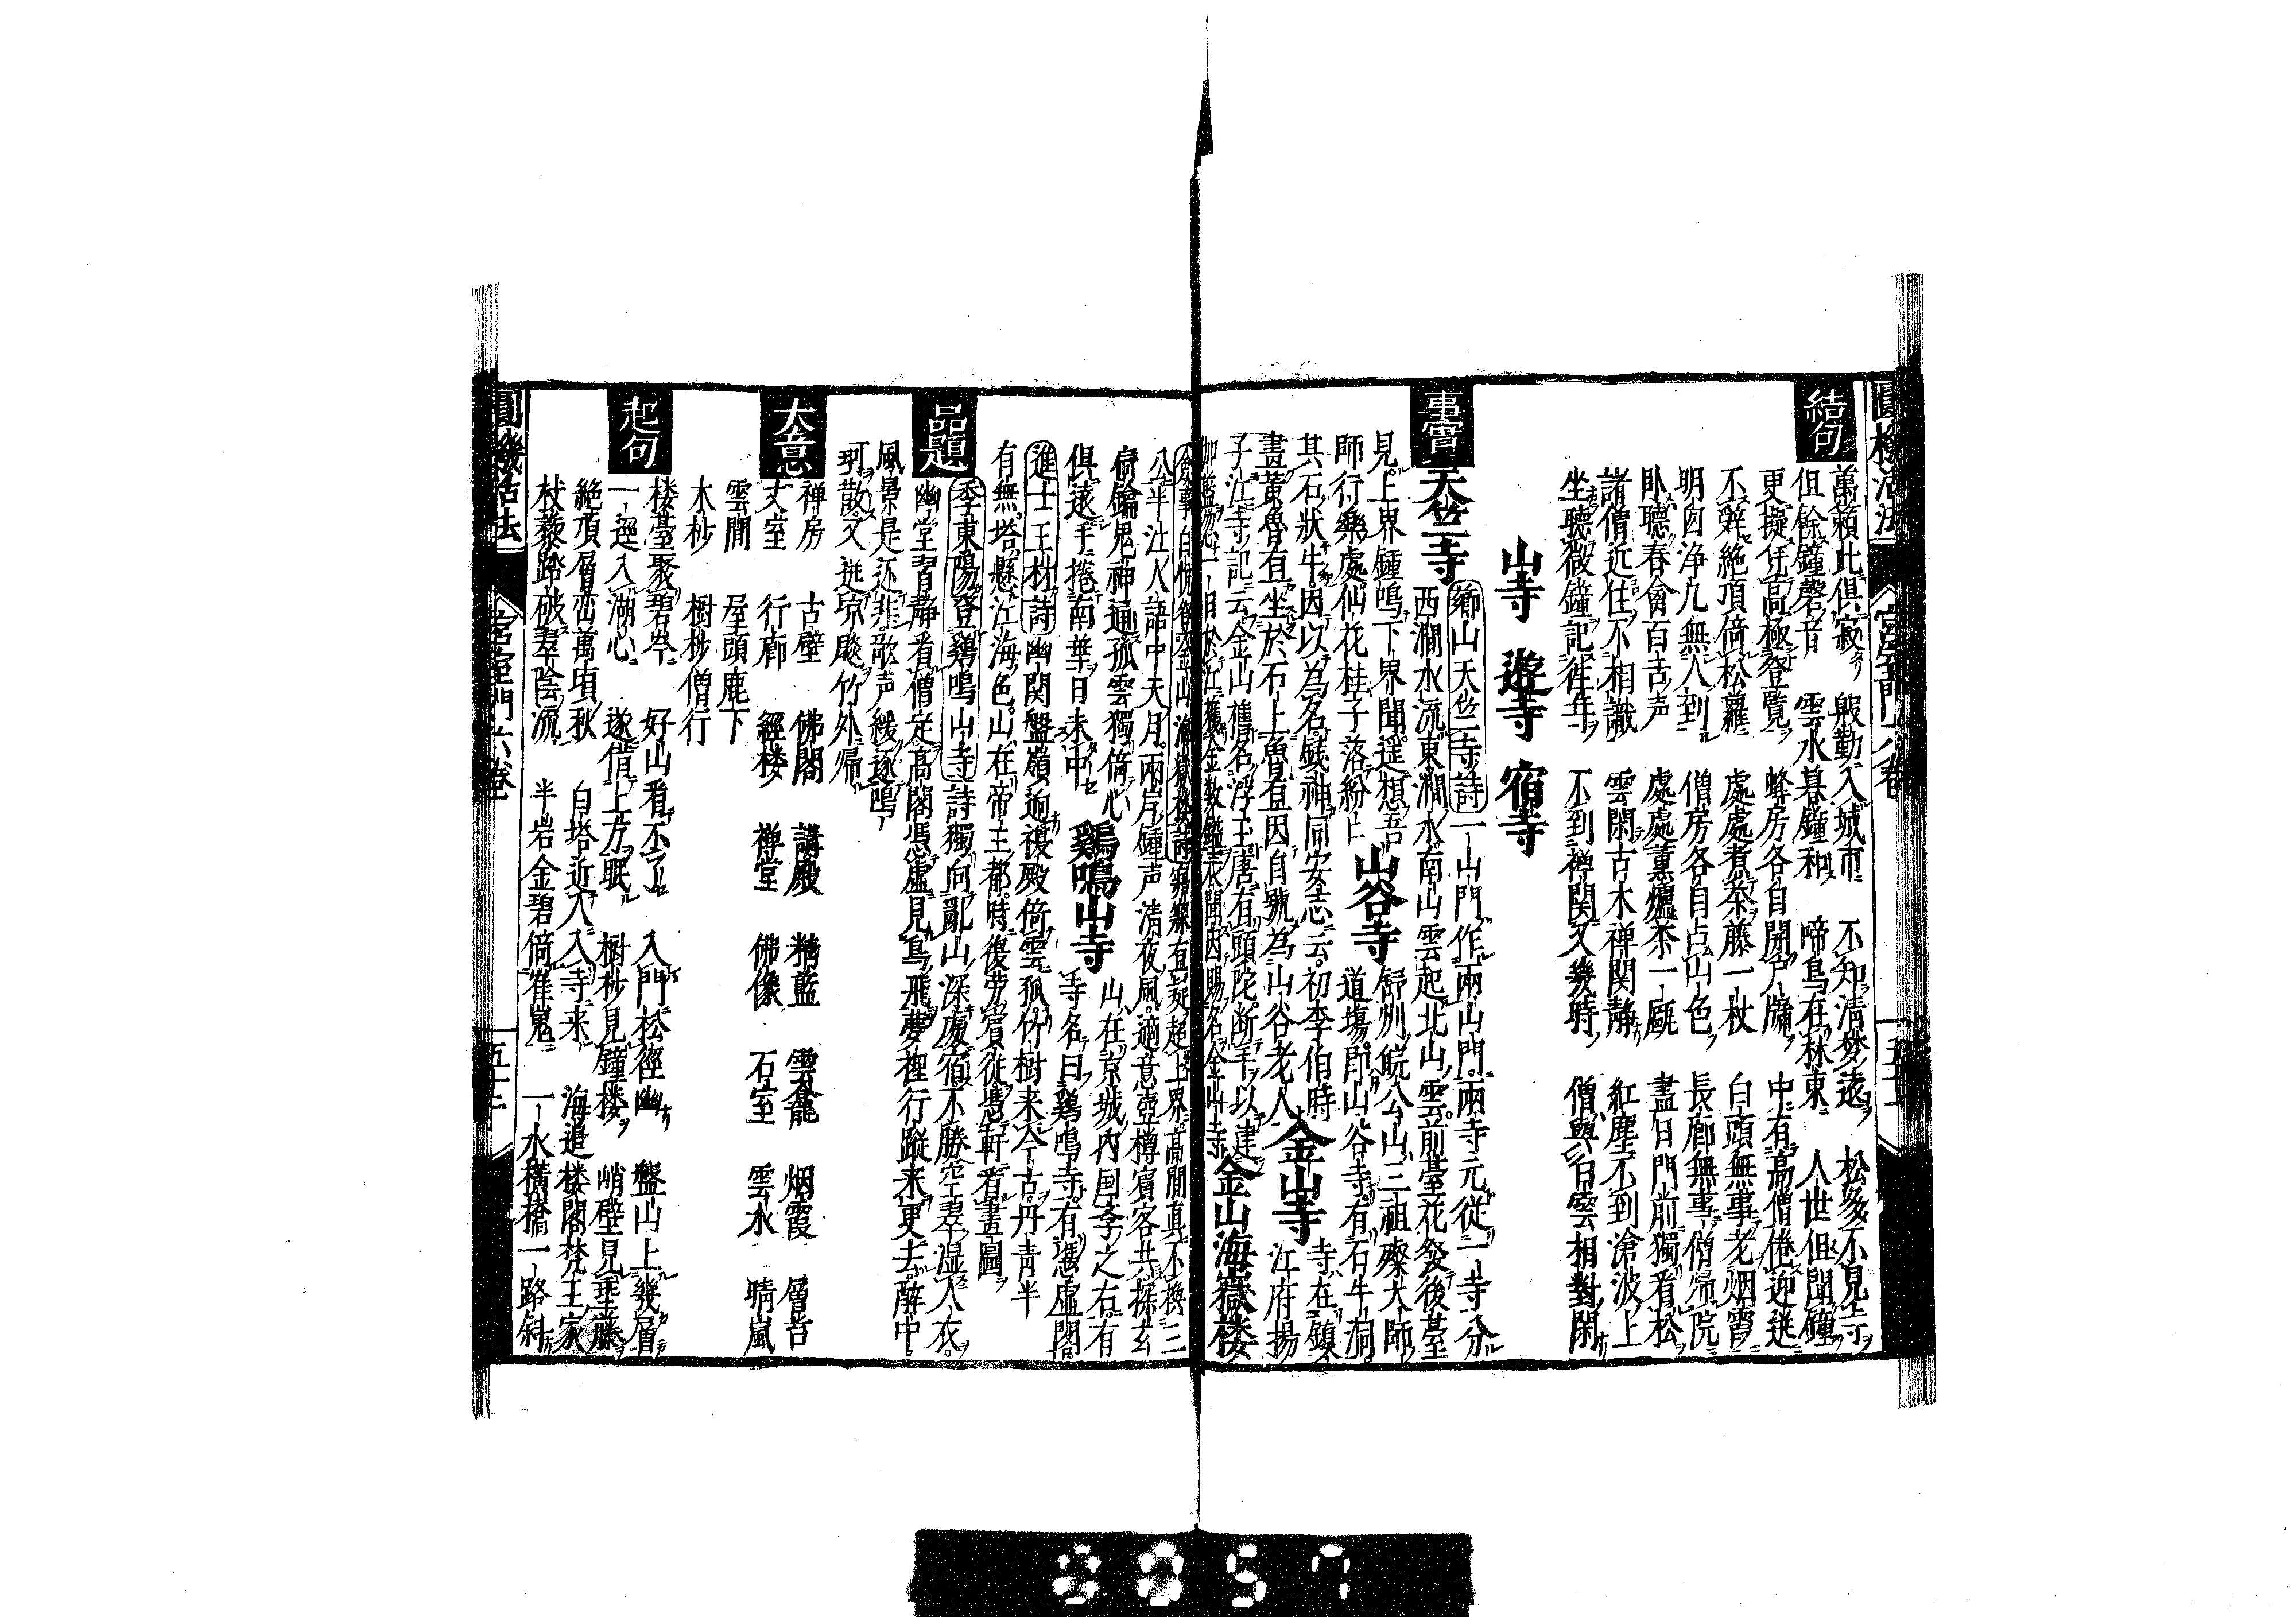 圓機活法
宮室門六巻
五十一
結句
萬籟此俱寂 殷勤入城市 不知清梦遠 松多不見寺
但餘鐘磬音 雲水暮鐘和 啼鳥在林東 人世但聞鐘
更擬凭高極登覽 蜂房各自開戶牖 中有高僧倦迎送
不辭絶頂倚松蘿 處處煮茶藤一杖 白頭無事老烟霞
明囱浄几無人到 僧房各自占山色 長廊無事僧帰院
卧聴春禽百舌声 處處薫爐茶一甌 盡日門前獨看松
諸僧近住不相識 雲閑古木禅関静 紅塵不到滄波上
坐聴微鐘記往年 不到禅関又幾時 僧與白雲相對閑
山寺 遊寺 宿寺
事實
天竺寺 郷山天竺寺詩 一山門作兩山門兩寺元從一寺分
西澗水流東澗水南山雲起北山雲前臺花發後臺
見上界鍾鳴下界聞遥想吾 山谷寺 舒州皖公山三祖璨大師
師行樂處仙花桂子落紛上 道塲即山谷寺有石牛洞
其石狀牛因以為名䥴神同安志云初李伯時 金山寺 寺在鎮
畫黄魯直坐於石上魯直因自號為山谷老人 江府揚
子江寺記云金山舊名浮玉唐有頭陀断手以建 金山海嶽楼
伽藍忽一日於江獲金数鎰表聞因賜名金山寺
僉事白 金山海嶽楼詩 超上界高閒真不換三
公半江人語中天月兩岸鍾声清夜風適意壺樽賓客共探玄
脩鑰鬼神通孤雲獨倚心 鷄鳴山寺 山在京城内囯李之右有
俱遠手捲南華日未中 寺名曰鷄鳴寺有憑虛閣
進士王材詩 幽関盤嶺逈複殿倚雲孤竹樹来今古丹青半
有無塔懸江海色山在帝王都時復労賓從憑軒看畫圖
季東陽登鷄鳴山寺 詩獨向亂山深處宿不勝空翠湿人衣
品題
幽堂習静看僧定髙閣憑虛見鳥飛夢裡行蹤来更去酔中
風景是还非歌声緩逐鳴
珂散又送凉颷竹外帰
大意
禅房 古壁 佛閣 講殿 精藍 雲龕 烟霞 層沓
丈室 行廊 經楼 禅堂 佛像 石室 雲水 晴嵐
雲間 屋頭鹿下
木杪 樹杪僧行
起句
楼臺聚碧岑 好山看不了 入門松徑幽 盤山上幾層
一逕入湖心 遂借上方眠 樹杪見鐘楼 峭壁見垂藤
絶頂層峦萬頃秋 白塔近人入寺来 海邉楼閣梵王家
杖藜踏破翠陰流 半岩金碧倚崔嵬 一水横橋一路斜
圓機活法
宮室門六巻
五十二
0057